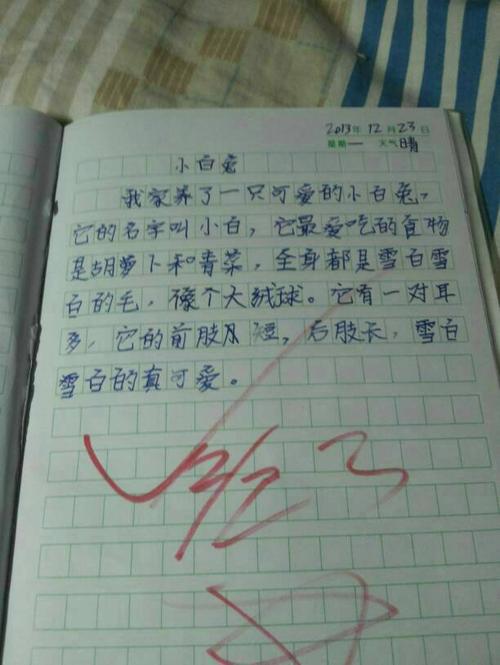 2013年12月23日
星期一 天气晴
小白兔
我家养了一只可爱的小白兔,
它的名字叫小白,它最爱吃的食物
是胡萝卜和青菜,全身都是雪白雪
白的毛,像个大绒球。它有一对耳
多,它的前肢短,后肢长,雪白
雪白的真可爱。